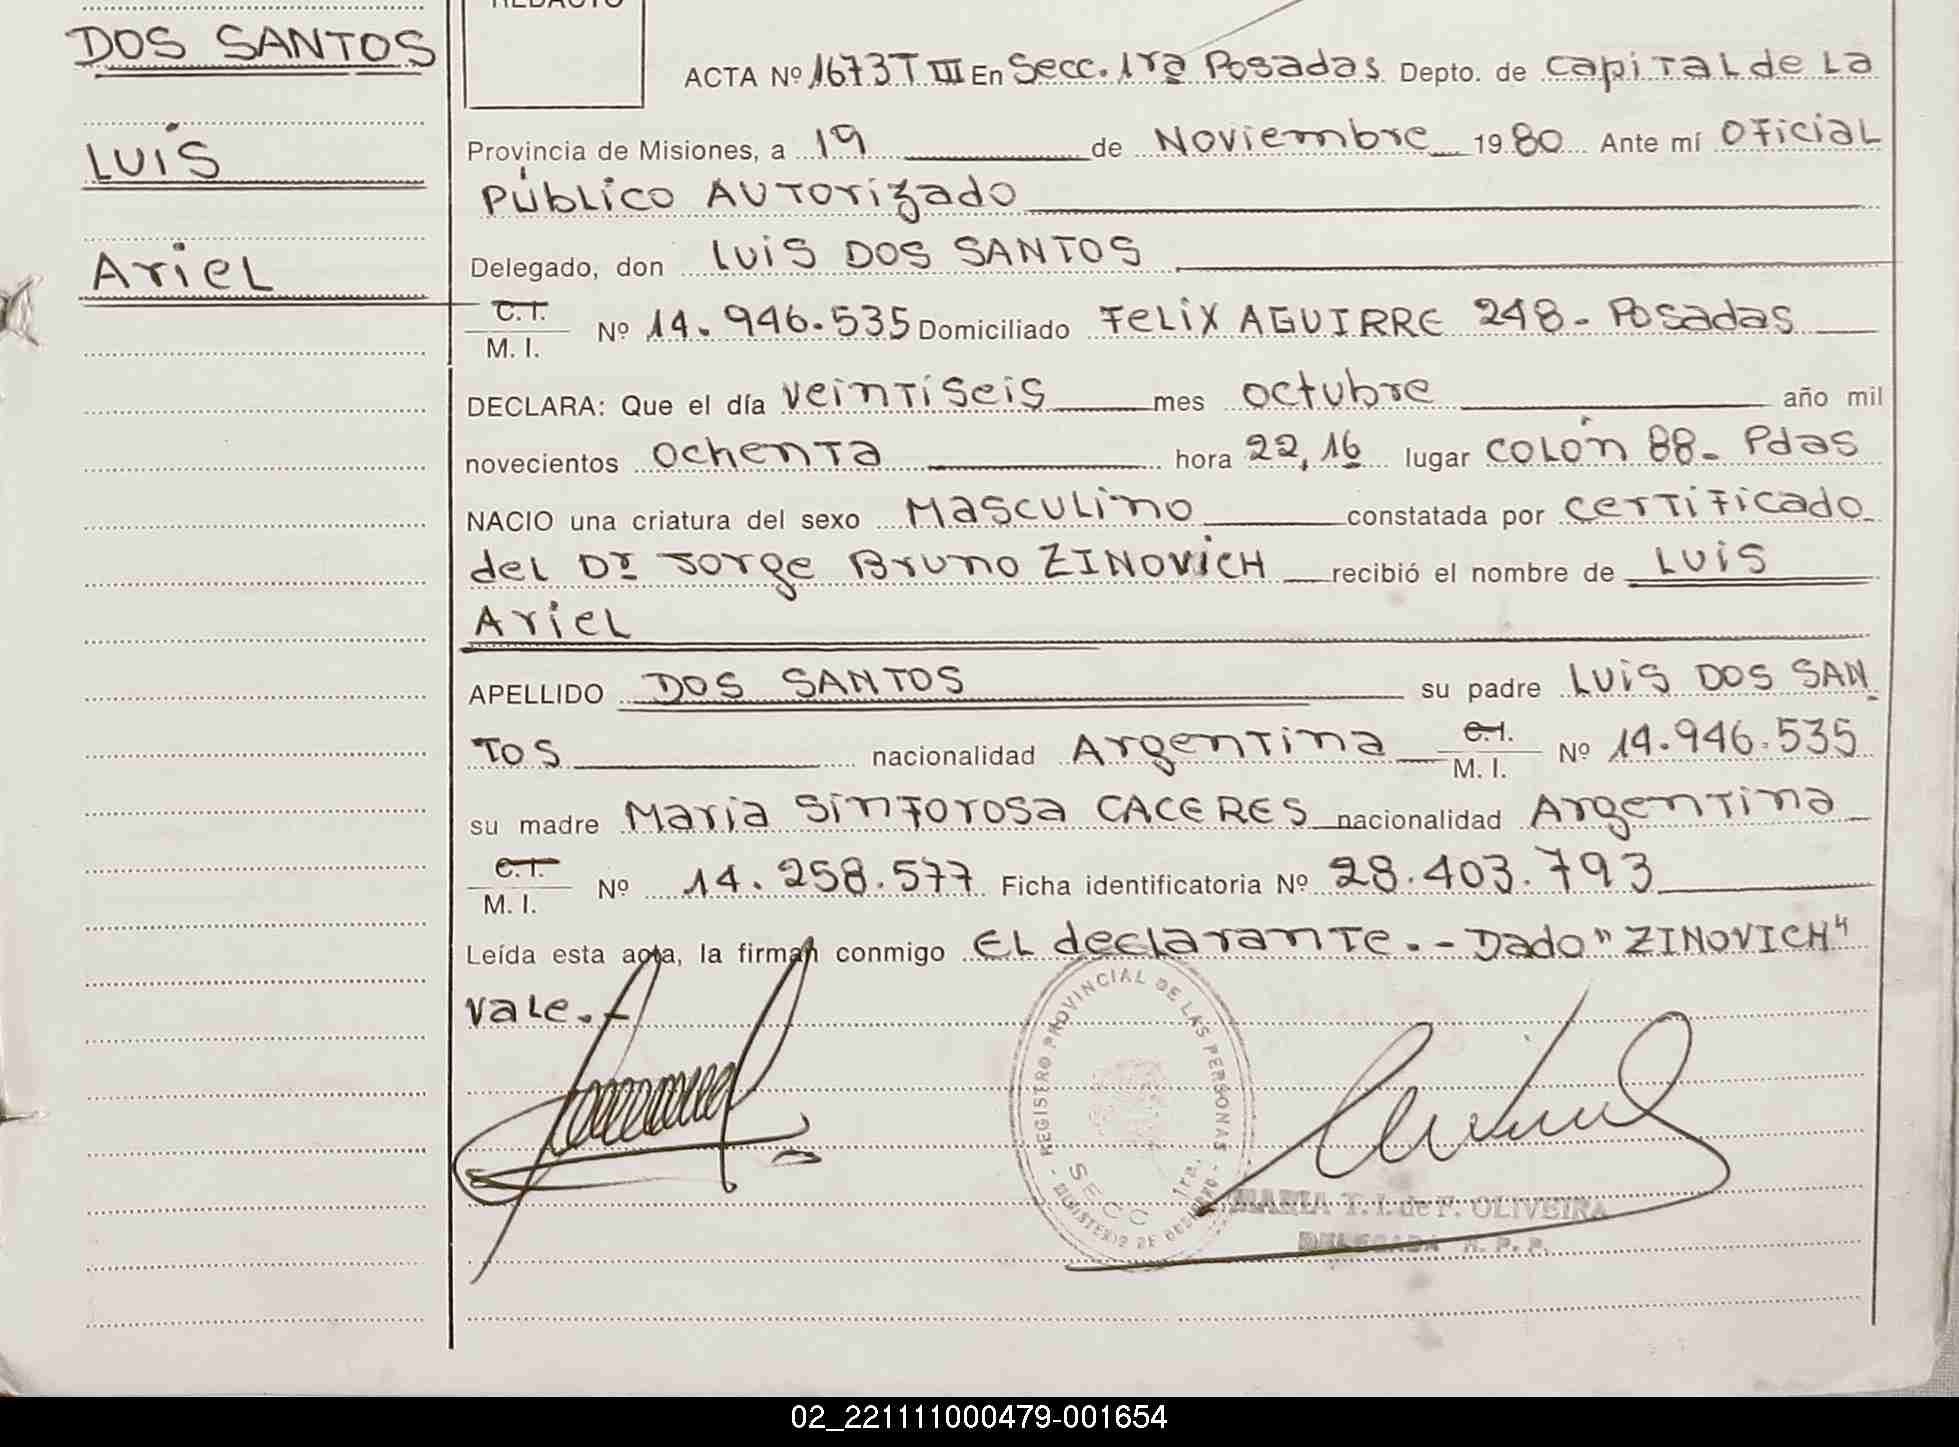 DOS SANTOS
LUIS
ARIEL
ACTA Nº 1673 T III En Secc. 1ra Posadas Depto. de Capital de La
Provincia de Misiones, a 19 de Noviembre 1980 Ante mí Oficial
Público Autorizado
Delegado, don LUIS DOS SANTOS
C.I.
M. I. Nº 14.946.535 Domiciliado FELIX AGUIRRE 248 - Posadas
DECLARA: Que el día veintiseis mes octubre año mil
novecientos ochenta hora 22,16 lugar COLÓN 88- Pdas
NACIO una criatura del sexo Masculino constatada por certificado
del Dr Jorge Bruno ZINOVICH recibió el nombre de LUIS
ARIEL
APELLIDO DOS SANTOS su padre LUIS DOS SAN
TOS nacionalidad Argentina C.I.
M. I. Nº 14.946.535
su madre Maria Sinforosa CACERES nacionalidad Argentina
C.I.
M. I. Nº 14.258.577 Ficha identificatoria Nº 28.403.793
Leída esta acta, la firman conmigo EL declarante.- Dado "ZINOVICH"
Vale.-
REGISTRO PROVINCIAL DE LAS PERSONAS
SECC. 1ra.
MINISTERIO DE GOBIERNO
MARIA T. I. de F. OLIVEIRA
DELEGADA R. P. P.
02_221111000479-001654